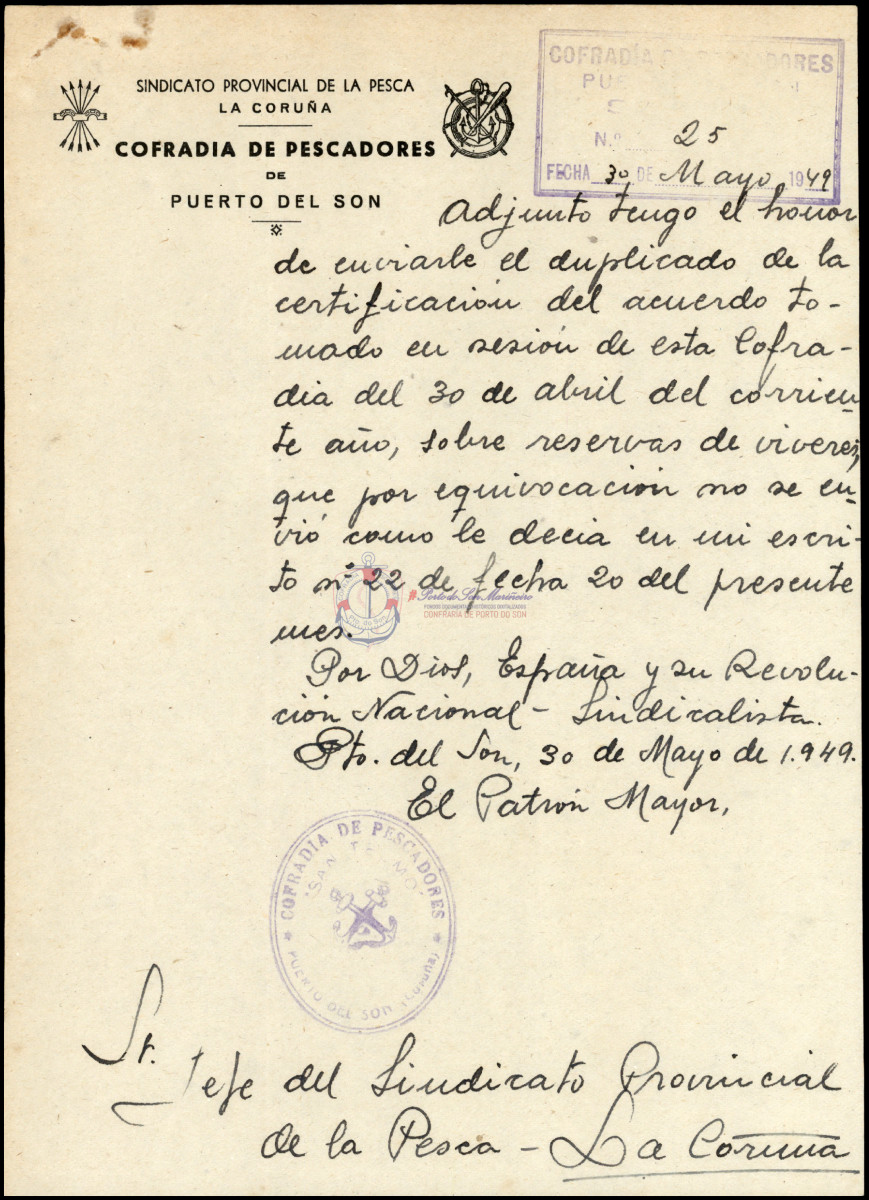 SINDICATO PROVINCIAL DE LA PESCA
LA CORUÑA
COFRADIA DE PESCADORES
DE
PUERTO DEL SON
COFRADÍA DE PESCADORES
PUE
S
N.º 25
FECHA 30 DE Mayo 1949
Adjunto tengo el honor
de enviarle el duplicado de la
certificación del acuerdo to-
mado en sesión de esta Cofra-
dia del 30 de abril del corrien-
te año, sobre reservas de viveres,
que por equivocación no se en-
vió como le decia en mi escri-
to nº 22 de fecha 20 del presente
mes.
#PortodoSonMariñeiro
FONDOS DOCUMENTAIS HISTÓRICOS DIXITALIZADOS
CONFRARÍA DE PORTO DO SON
Pto. do Son
Por Dios, España y su Revolu-
ción Nacional-Sindicalista.
Pto. del Son, 30 de Mayo de 1.949.
El Patrón Mayor,
COFRADÍA DE PESCADORES
"SAN TELMO"
PUERTO DEL SON (Coruña)
Sr. Jefe del Sindicato Provincial
de la Pesca - La Coruña